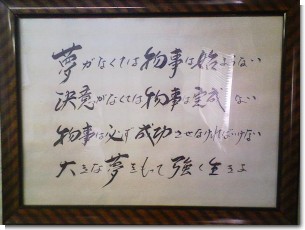 夢がなくては物事は始まらない
決意がなくては物事は完成しない
物事は必ず成功させなければいけない
大きな夢をもって強く生きよ